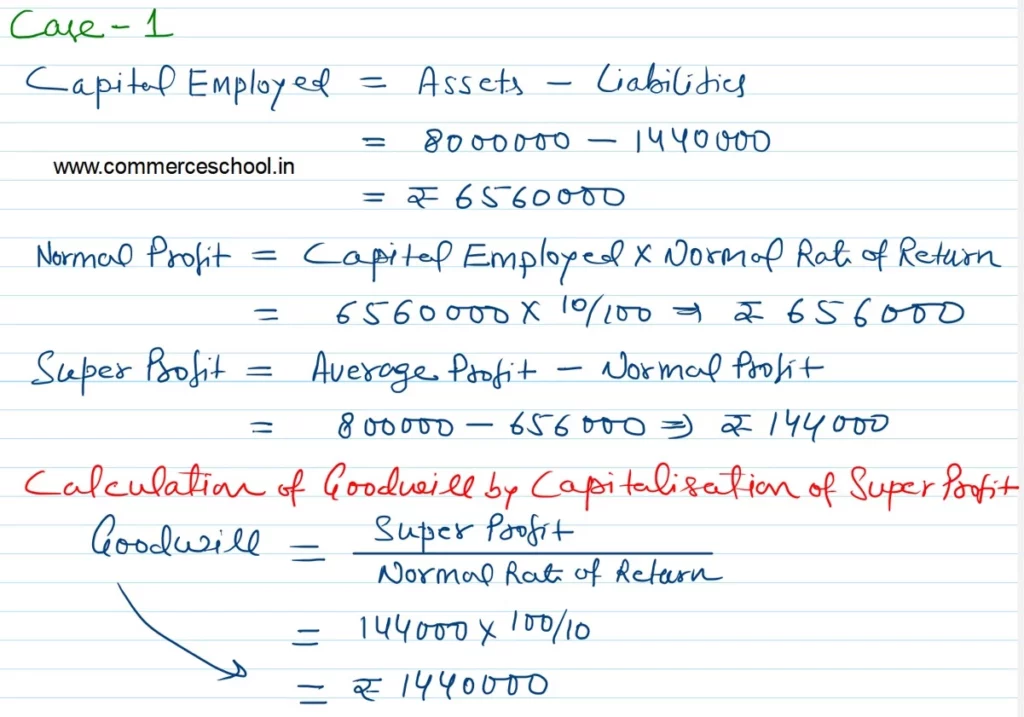 Case - 1
Capital Employed = Assets - Liabilities
= 8000000 - 1440000
www.commerceschool.in
= ₹ 6560000
Normal Profit = Capital Employed × Normal Rate of Return
= 6560000 × 10/100 ⇒ ₹ 656000
Super Profit = Average Profit - Normal Profit
= 800000 - 656000 ⇒ ₹ 144000
Calculation of Goodwill by Capitalisation of Super Profit
Goodwill = Super Profit
Normal Rate of Return
= 144000 × 100/10
= ₹ 1440000